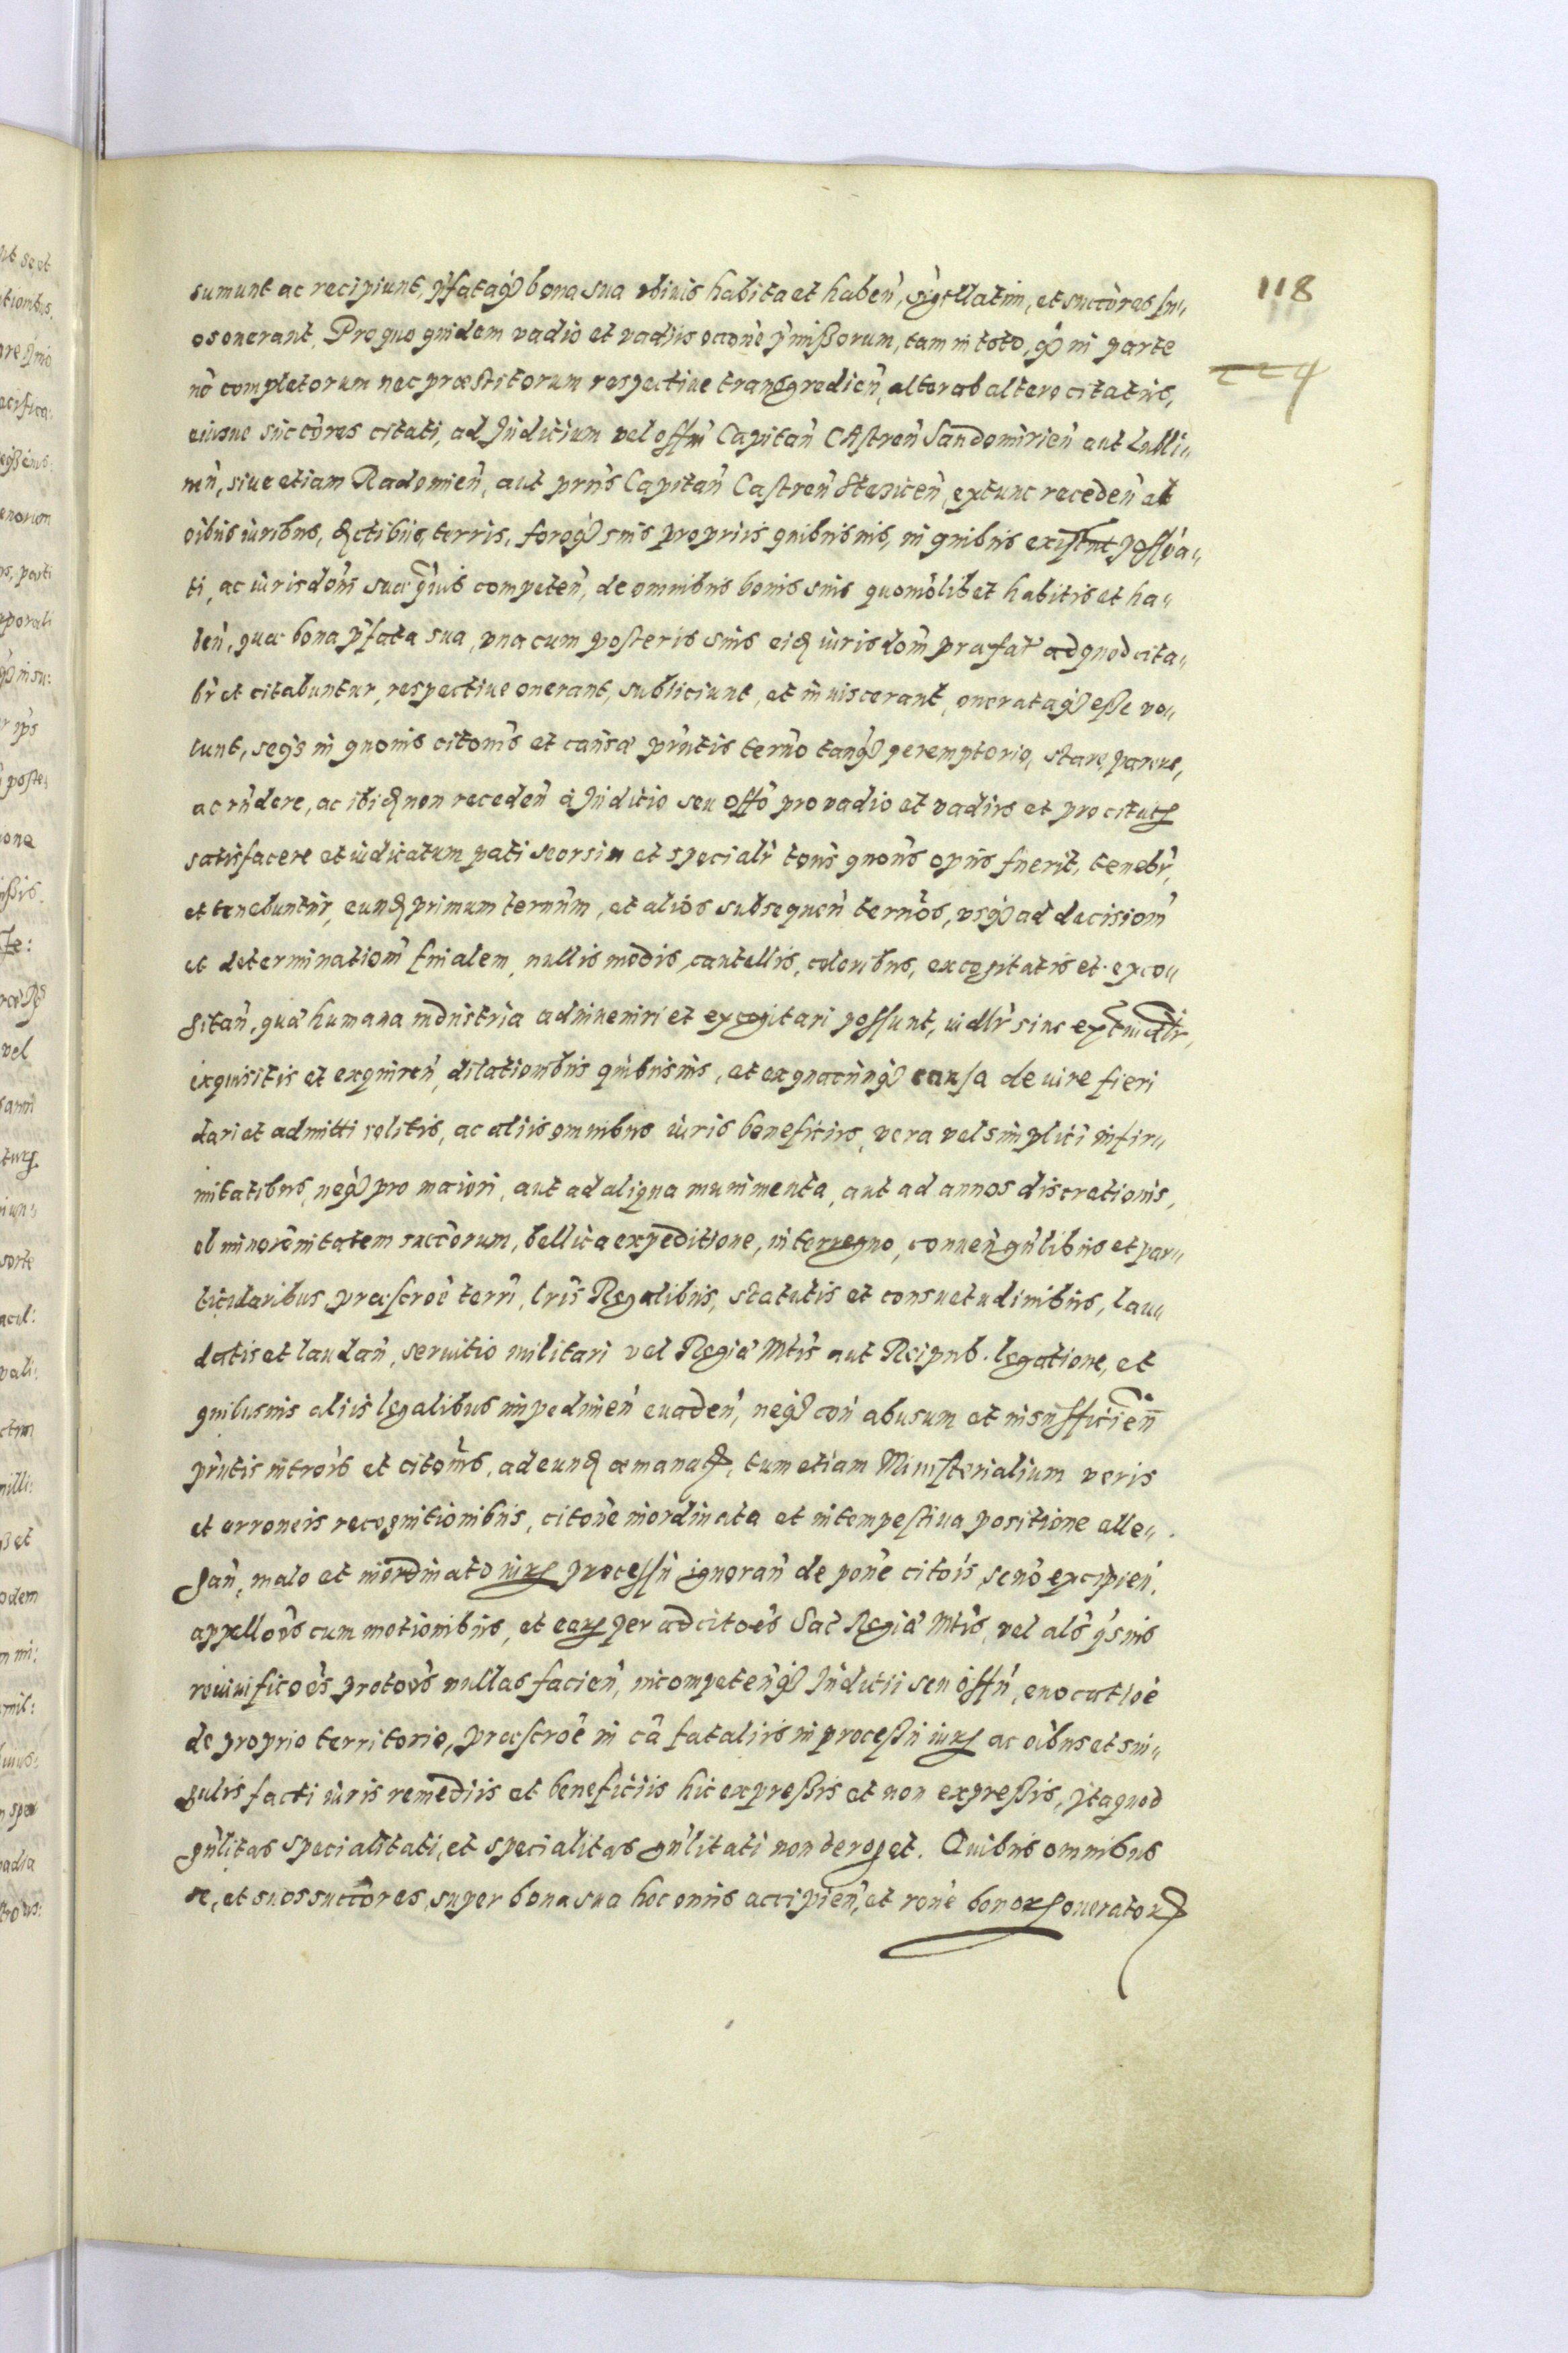 118
224
sumunt ac recipiunt, p̃fataq̃ bona sua vbiuis habita et habeñ, sigillatim, et succõres su„
os onerant. Pro quo quidem vadio et vadijs occone p̃mißorum, tam in toto, q̃ in parte
nõ completorum nec præstitorum respectiue transgredieñ, alter ab altero citatus,
eiusue succõres citati, ad Juditium vel offm̃ Capitañ Castreñ Sandomirieñ aut Lubli„
neñ, siue etiam Radomieñ, aut pñs Capitañ Castreñ Steziceñ, extunc recedeñ ab
oĩbus iuribus, terris, foroq̃ suis proprijs quibusuis, in quibus existunt possẽa„
ti, ac iurisdõnis suæ q̃uis competeñ, de omnibus bonis suis quomõlibet habitis et ha„
beñ, quæ bona p̃fata sua, vna cum posteris suis eid iurisdõni præfat̃ ad quod cita„
bĩr et citabuntur, respectiue onerant, subiiciunt, et inuiscerant, onerataq̃ esse vo„
lunt, seq̃ in quouis citonis et causæ pñtis termo tanq̃ peremptorio, stare, parere,
ac rñdere, ac ibid non recedeñ à Juditio seu offõ pro vadio et vadijs et pro citatis
satisfacere et iudicatum pati seorsim et specialr̃ toties quoties opus fuerit, tenebr̃,
et tenebuntur, eund primum termum, et alios subsequeñ termos, vsq̃ ad decisionẽ
et determinationẽ finalem, nullis modis, cautellis, coloribus, excogitatis et exco„
gitañ, quæ humana industria adinueniri et excogitari possunt, vidlr̃ siue
exquisitis et exquireñ, dilationibus quibusuis, et ex quacunq̃ causa de iure fieri
dari et admitti solitis, ac alijs omnibus iuris beneficijs, vera vel simplici infir„
mitatibus, neq̃ pro maiori, aut ad aliqua munimenta, aut ad annos discretionis,
ob minorẽnitatem succõrum, bellica expeditione, interregno, conueñ gñlibus et par„
ticularibus, præscroẽ terrĩ, lrĩs Regalibus, statutis et consuetudinibus, lau„
datis et laudañ, seruitio militari vel Regiæ Mtis aut Reipub. legatione, et
quibusuis alijs legalibus impedimeñ euadeñ, neq̃ coñ abusum et insufficieñ
pñtis introis et citonis, ad eund emanat, tum etiam Ministerialium veris
et erroneis recognitionibus, citoñe inordinata et intempestiua positione alle„
gañ, malo et inordinato iuris processu ignorañ de poñe citois, se nõ excipieñ,
appelloẽs cum motionibus, et earum per adcitoẽs Sac Regiæ Mtis, vel als q̃suis
reuiuificoẽs protoẽs nullas facieñ, incompeteñq̃ Juditij seu offij, euocatioẽ
de proprio territorio, præscroẽ in cã fatalijs in processu iuris ac oĩbus et sin„
gulis facti iuris remedijs et beneficijs hic expreßis et non expreßis, Ita quod
gñlitas specialitati, et specialitas gñlitati non deroget. Quibus omnibus
se, et suos succõres, super bona sua hoc onus accipieñ, et roñe bonorum oneratorum